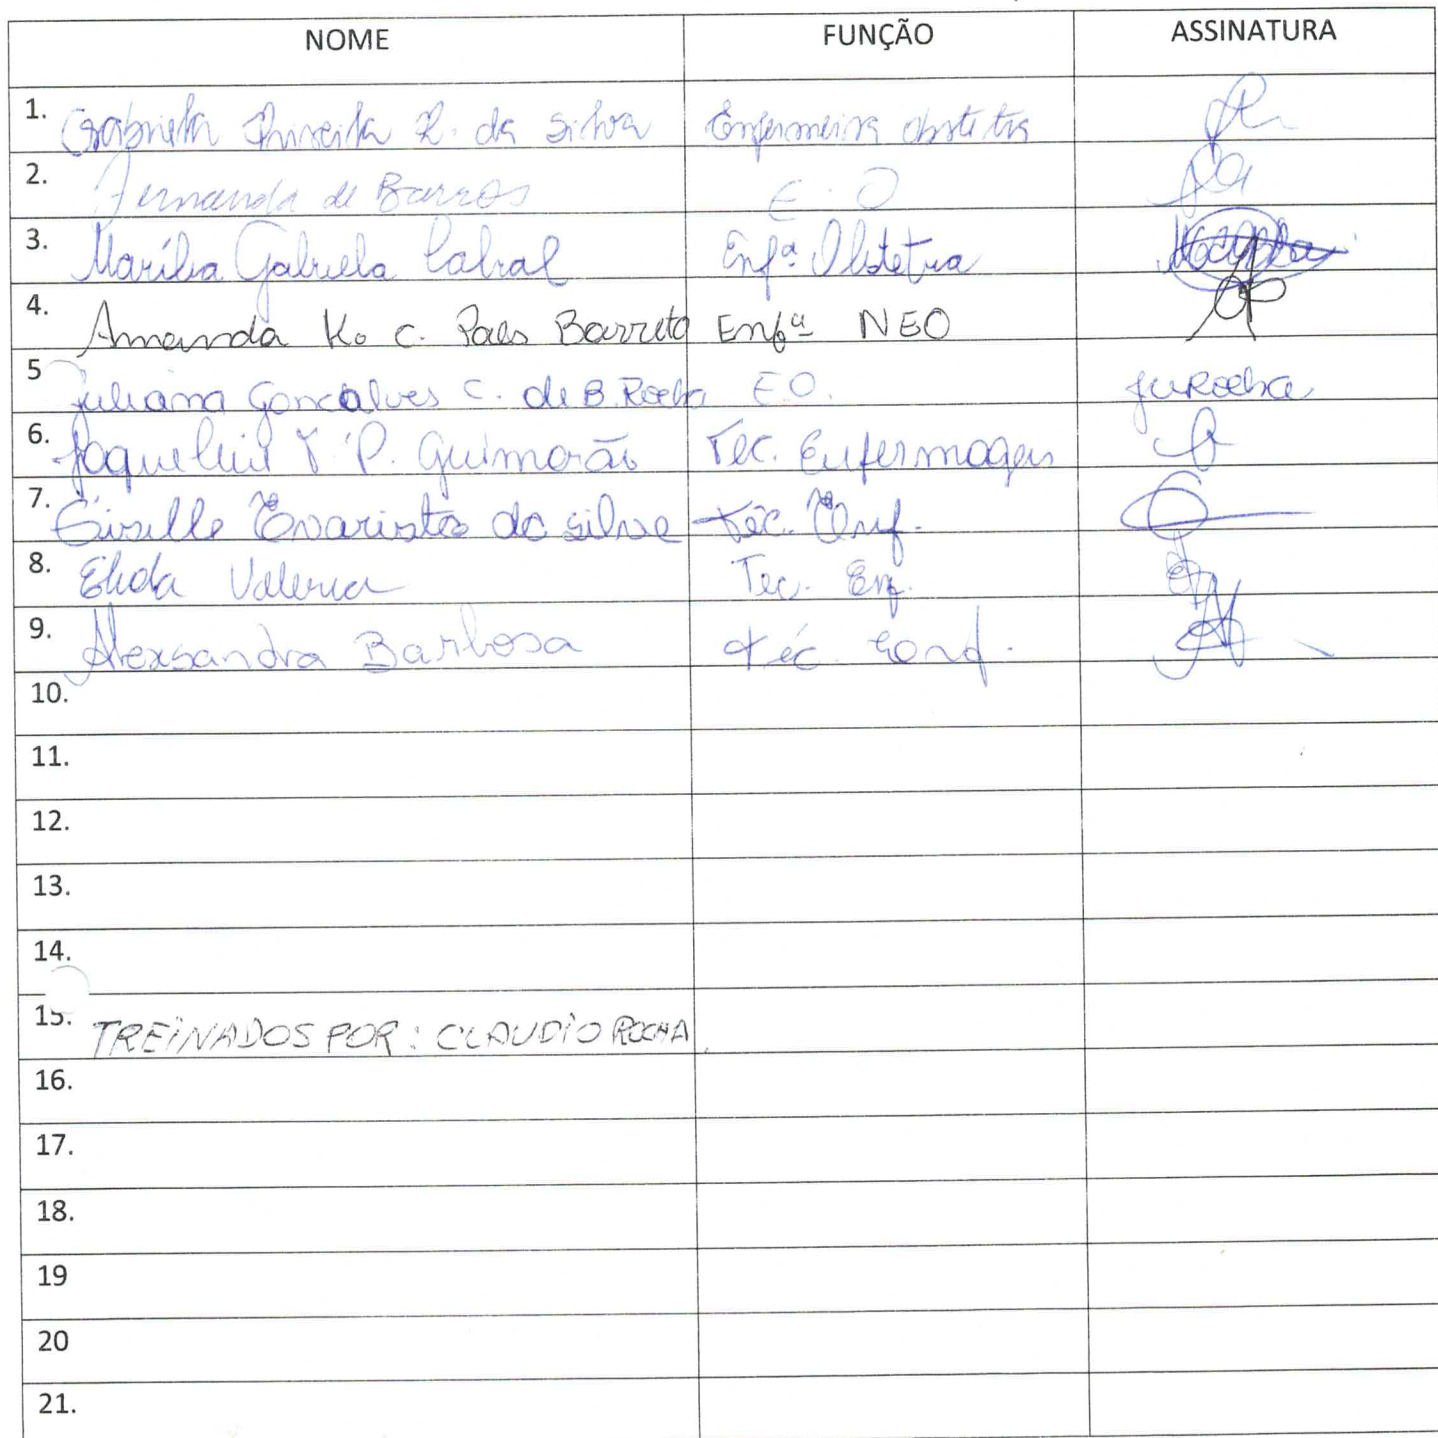 NOME FUNÇÃO ASSINATURA
1. Gabriela R. da Silva Enfermeira obstetra
2. Fernanda de Barros E.O
3. Marília Gabriela Cabral Enfª Obstetra
4. Amanda K. C. Paes Barreto Enfª NEO
5 Juliana Gonçalves C. de B. Rocha E.O. JuRocha
6. P. Guimarães Tec. Enfermagem
7. Giselle Evaristo da Silva Téc. Enf.
8. Elida Valeria Tec. Enf.
9. Alexsandra Barbosa Téc. Enf.
10.
11.
12.
13.
14.
15. TREINADOS POR: CLAUDIO ROCHA
16.
17.
18.
19
20
21.